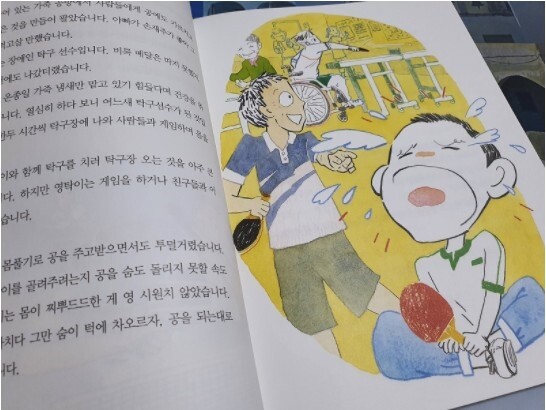 가죽 공장에서 사람들에게
것을 만들어 팔았습니다. 아빠가 손재주가 좋아
만했습니다.
장애인 탁구 선수입니다. 비록 메달은 따지 못했지
나갔더랬습니다.
온종일 가죽 냄새만 맡고 있기 힘들다며 건강을 위
니다. 열심히 하다 보니 어느새 탁구선수가 된 것입
두 시간씩 탁구장에 나와 사람들과 게임하며 몸을
와 함께 탁구를 치러 탁구장 오는 것을 아주 큰
다. 하지만 영탁이는 게임을 하거나 친구들과 어
습니다.
몸풀기로 공을 주고받으면서도 투덜거렸습니다.
이를 골려주려는지 공을 숨도 돌리지 못할 속도
는 몸이 찌뿌드드한 게 영 시원치 않았습니다.
치다 그만 숨이 턱에 차오르자, 공을 되는대로
니다.